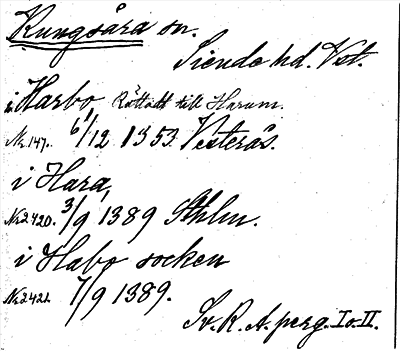 Kungsåra sn.
Siende hd. Vst.
i Harbo, Rättadt till Harum.
Nr. 147. 6/12 1353 Vesterås.
i Hara,
Nr. 2420. 3/9 1389 Sthlm.
i Habo socken
Nr. 2421. 7/9 1389.
Sv. R. A. perg. I o. II.